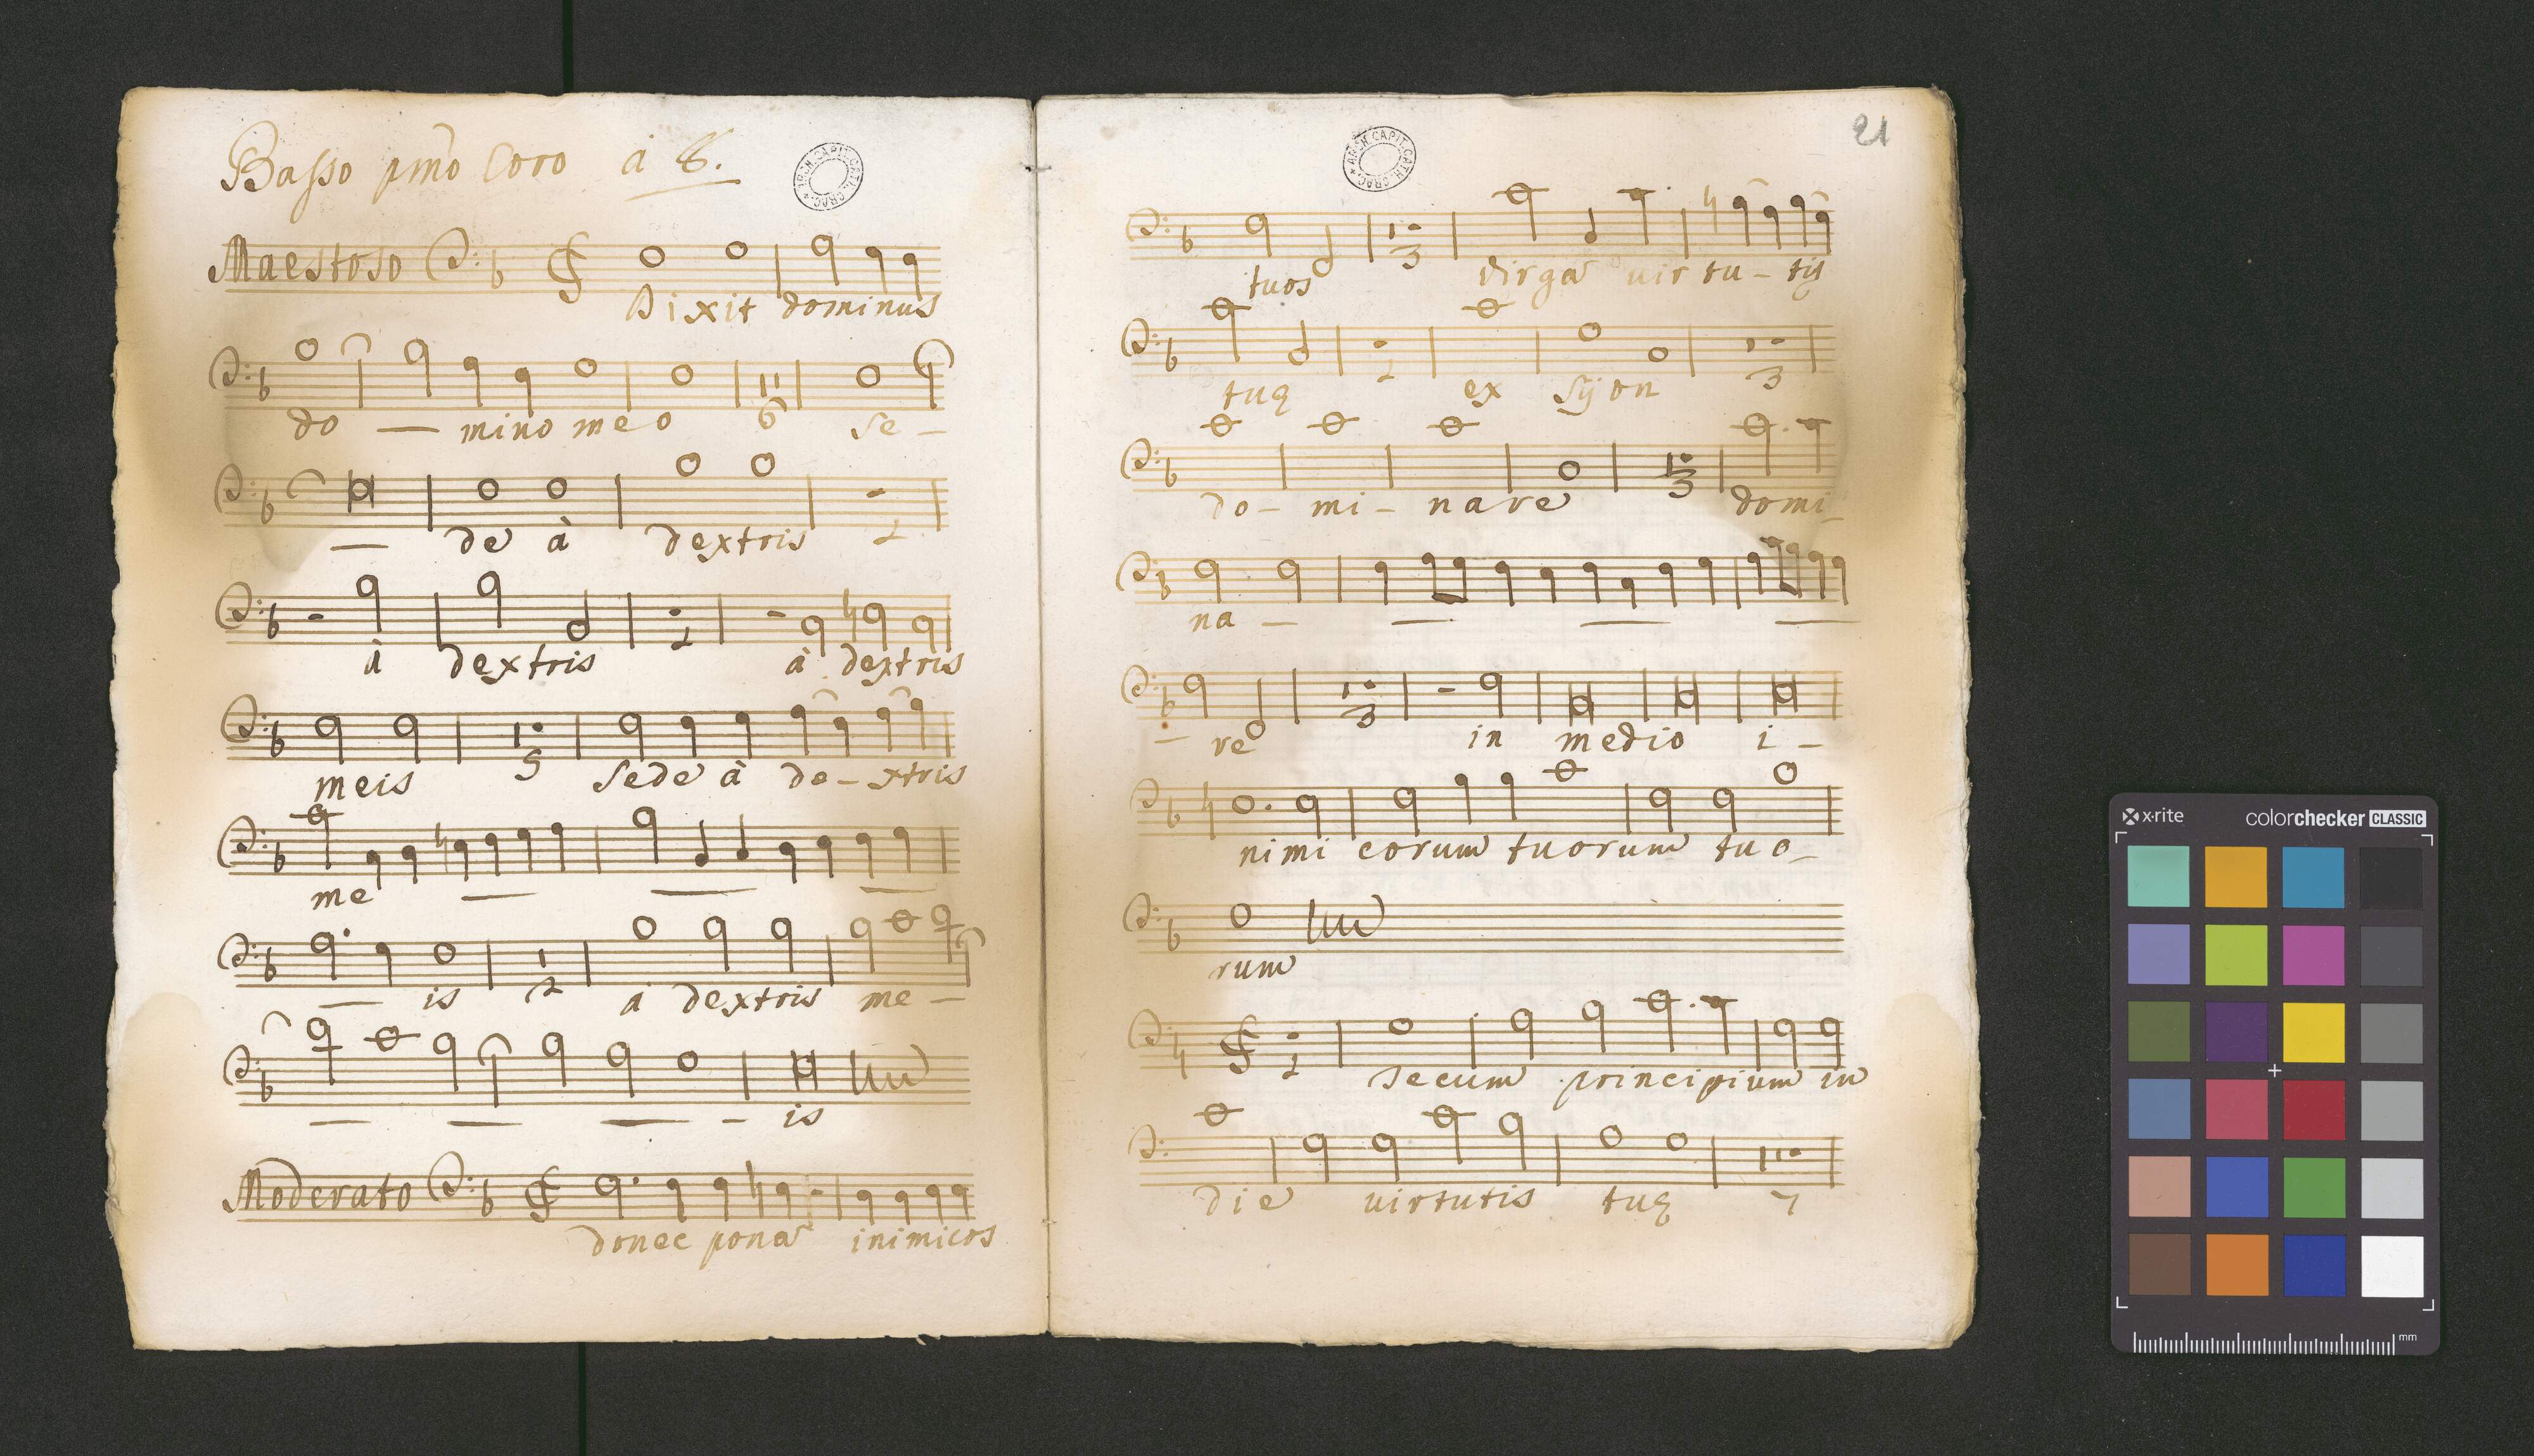 Basso pmo Coro à 8.
ARCH. CAPIT. CATH. CRAC.
Maestoso
Dixit dominus
do — mino meo 6 se -
— de à dextris 2
à dextris 2 à dextris
meis 5 sede à de - xtris
me — — —
— is 2 a dextris me —
— — — - is
Moderato
donec ponā inimicos
21
ARCH. CAPIT. CATH. CRAC.
tuos 3 virgā uir tu - tis
tuę 2 ex syon 3
do - mi - nare 3 domi -
na — — — —
— re 3 in medio i -
nimi corum tuorum tuo -
rum
2 secum principium in
die uirtutis tuę 7
x-rite colorchecker CLASSIC
mm